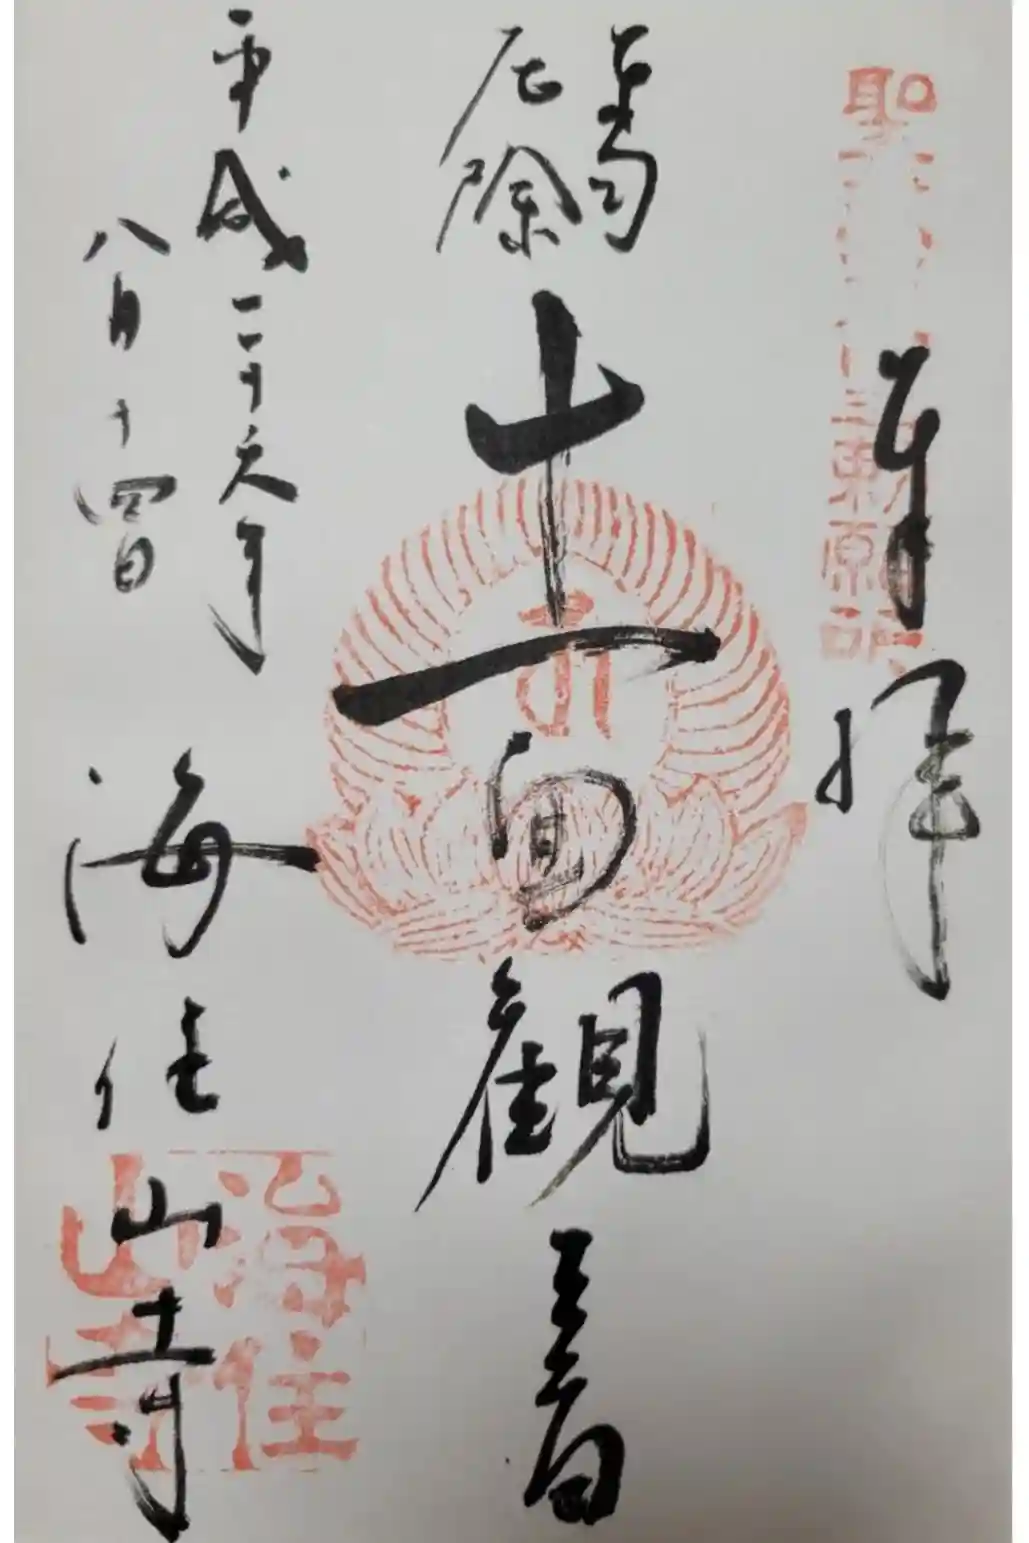 奉拝
厄除
十一面観音
平成二十六年
八月十四日
海住山寺
海住山寺